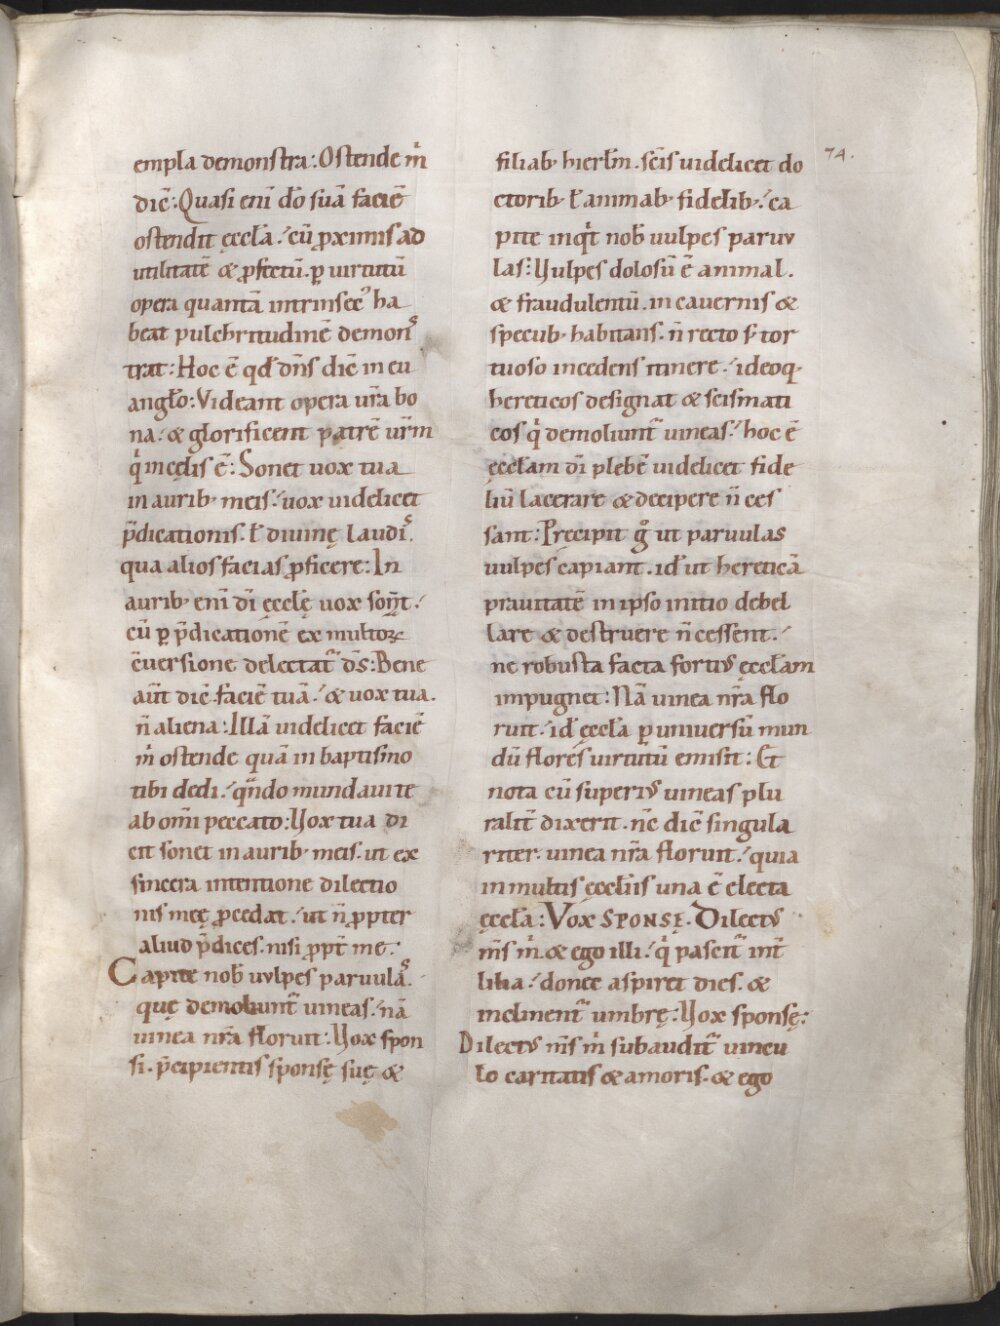 empla demonstra: Ostende m̊
dic̄: Quasi eni̅ d̅o sua̅ facie̅
ostendit ęcclā. cu̅ ꝓximis ad
utilitate̅ & ꝓfectu̅. ꝑ uirtutu̅
opera quanta̅ intrinsecꝰ ha
beat pulchritudine̅ demons
trat: Hoc ē qđ dn̄s dic̄ in eu
angło: Videant opera ur̄a bo
na. & glorificent patre̅ ur̄m
q̊ in cęlis ē: Sonet uox tua
in aurib; meis. uox uidelicet
p̄dicationis. ł diuinę laudis.
qua alios facias ꝓficere: In
aurib; eni̅ di̅ ęcclę uox son̄t.
cu̅ ꝑ p̄dicatione̅ ex multoꝝ
c̄uersione delectat᷑ dn̄s: Bene
aut̄ dic̄ facie̅ tua̅. & uox tua.
n̄ aliena: Illa̅ uidelicet facie̅
m̊ ostende qua̅ in baptismo
tibi dedi. qn̄do mundaui te
ab omi̅ peccato: Uox tua di
cit sonet in aurib; meis. ut ex
sincera intentione dilectio
nis meę ꝓcedat. ut n̄ ꝓpter
aliud p̄dices. nisi ꝓpt̄ me.
Capite nob; uulpes paruulas.
quę demoliunt᷑ uineas. na̅
uinea nr̄a floruit: Uox spon
si. p̄cipientis sponsę suę &
74.
filiab; hierłm. sc̄is uidelicet do
ctorib; ł animab; fidelib;. ca
pite inq̊t nob; uulpes paruu
las: Uulpes dolosu̅ ē animal.
& fraudulentu̅. in cauernis &
specub; habitans. n̄ recto s; tor
tuoso incedens itinere. ideoq;
hereticos designat & scismati
cos q̊ demoliunt᷑ uineas. hoc ē
ęccłam di̅ plebe̅ uidelicet fide
liu̅ lacerare & decipere n̄ ces
sant: Pręcipit g̊ ut paruulas
uulpes capiant. id̄ ut heretica̅
prauitate̅ in ipso initio debel
lare & destruere n̄ cessent.
ne robusta facta fortiꝰ ęccłam
impugnet: Na̅ uinea nr̄a flo
ruit. id̄ ęccła ꝑ uniuersu̅ mun
du̅ flores uirtutu̅ emisit: Et
nota cu̅ superiꝰ uineas plu
ralit̄ dixerit. nc̄ dic̄ singula
riter. uinea nr̄a floruit. quia
in multis ęccłiis una ē electa
ęccła: Vox sponsę. Dilectꝰ
m̄s m̊. & ego illi. q̊ pascit᷑ int̄
lilia. donec aspiret dies. &
inclinent᷑ umbrę: Uox sponsę:
Dilectꝰ m̄s m̊ subaudit᷑ uincu
lo caritatis & amoris. & ego